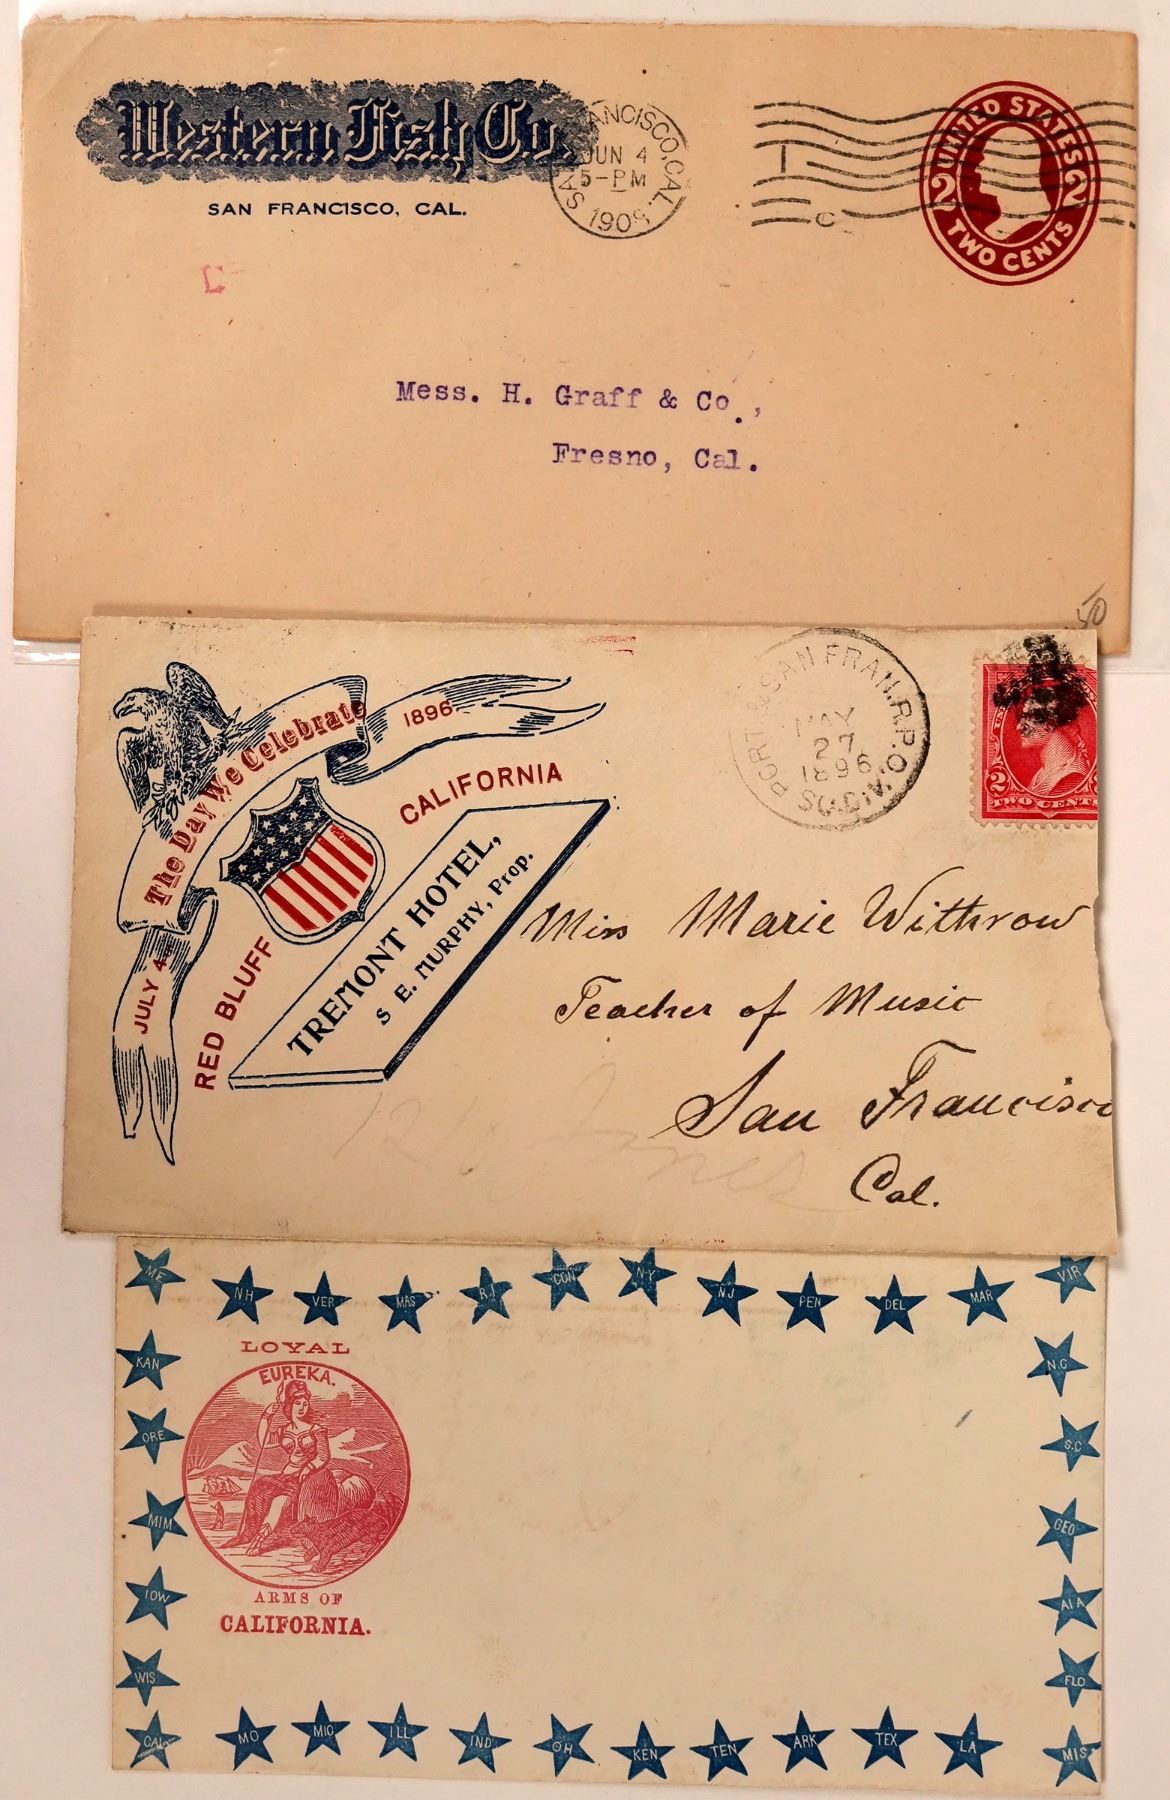 Western Fish Co.
SAN FRANCISCO, CAL.
SAN FRANCISCO, CAL.
JUN 4
5-PM
UNITED STATES
2 2
TWO CENTS
Mess. H. Graff & Co.,
Fresno, Cal.
50
The Day We Celebrate
1896
JULY 4
RED BLUFF
CALIFORNIA
TREMONT HOTEL,
S E. MURPHY, Prop.
PORT & SAN FRAN. R.P.O.
MAY
27
1896
2
TWO CENTS
Miss Marie Withrow
Teacher of Music
San Francisco
Cal.
ME NH VER MAS R.I CON N.Y NJ PEN DEL MAR VIR
KAN N.C
ORE S.C
MIM GEO
IOW AIA
WIS FLO
CAL MO MIC ILL IND OH KEN TEN ARK TEX LA MIS
LOYAL
EUREKA.
ARMS OF
CALIFORNIA.